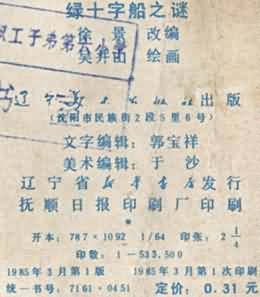 绿十字船之谜
徐景 改编
吴井田 绘画
职工子弟第
辽 出版
(沈阳市民族街2段5里6号)
文字编辑：郭宝祥
美术编辑：于 沙
辽宁省新华书店发行
抚顺日报印刷厂印刷
*
开本：787×1092 1/64 印张：2 1/4
印数：1—533,500
1985年3月第1版 1985年3月第1次印刷
统一书号：7161·0451 定价：0.31元